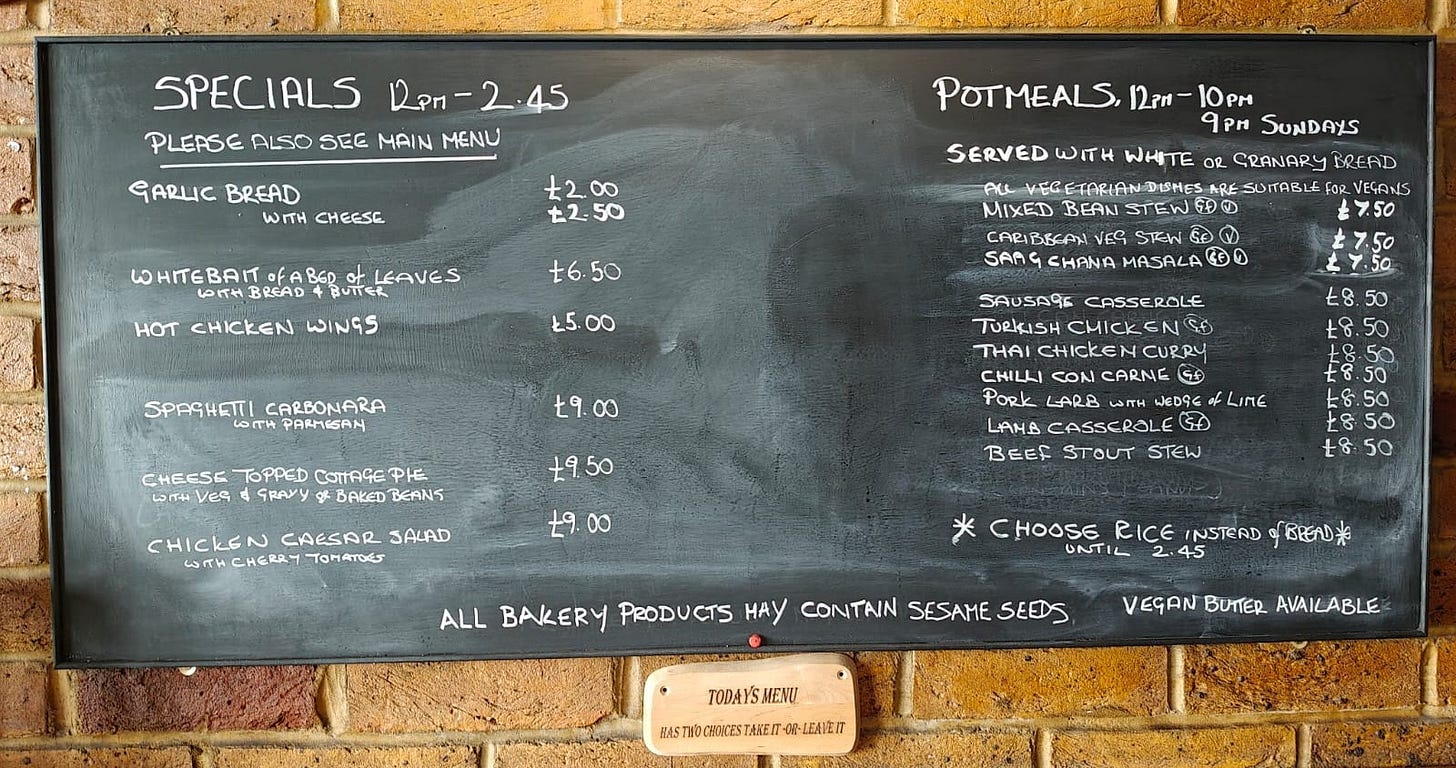 SPECIALS 12PM - 2.45
PLEASE ALSO SEE MAIN MENU
GARLIC BREAD £2.00
WITH CHEESE £2.50
WHITEBAIT of A BED of LEAVES £6.50
WITH BREAD & BUTTER
HOT CHICKEN WINGS £5.00
SPAGHETTI CARBONARA £9.00
WITH PARMESAN
CHEESE TOPPED COTTAGE PIE £9.50
WITH VEG & GRAVY or BAKED BEANS
CHICKEN CAESAR SALAD £9.00
WITH CHERRY TOMATOES
POTMEALS, 12PM - 10PM
9PM SUNDAYS
SERVED WITH WHITE OR GRANARY BREAD
ALL VEGETARIAN DISHES ARE SUITABLE FOR VEGANS
MIXED BEAN STEW GF V £7.50
CARIBBEAN VEG STEW GF V £7.50
SAAG CHANA MASALA GF V £7.50
SAUSAGE CASSEROLE £8.50
TURKISH CHICKEN GF £8.50
THAI CHICKEN CURRY £8.50
CHILLI CON CARNE GF £8.50
PORK LARB WITH WEDGE of LIME £8.50
LAMB CASSEROLE GF £8.50
BEEF STOUT STEW £8.50
* CHOOSE RICE INSTEAD of BREAD *
UNTIL 2.45
ALL BAKERY PRODUCTS MAY CONTAIN SESAME SEEDS
VEGAN BUTTER AVAILABLE
TODAY'S MENU
HAS TWO CHOICES TAKE IT -OR- LEAVE IT